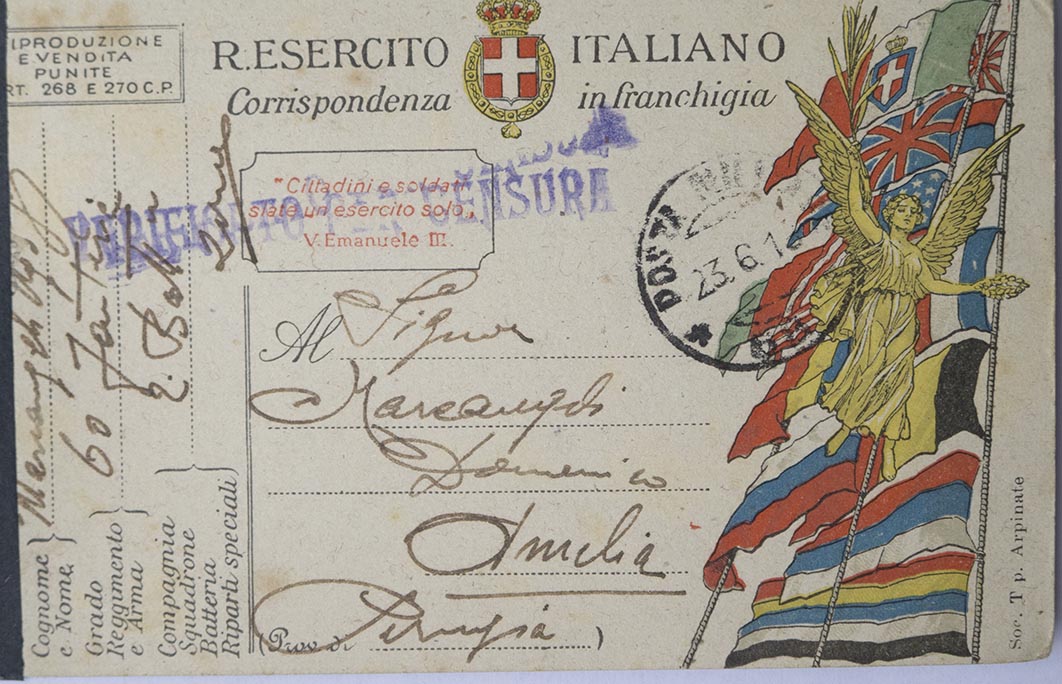 RIPRODUZIONE
E VENDITA
PUNITE
RT. 268 E 270 C.P.
R. ESERCITO ITALIANO
Corrispondenza in franchigia
"Cittadini e soldati
siate un esercito solo„
V. Emanuele III.
VERIFICATO PER CENSURA
POSTA
23.6.1
Al Signor
Marcangeli
Domenico
Amelia
(Prov. di Perugia)
Cognome
e Nome
Grado
Reggimento
e Arma
60 Fanteria
Compagnia
Squadrone
Batteria
Riparti speciali
Soc. Tip. Arpinate